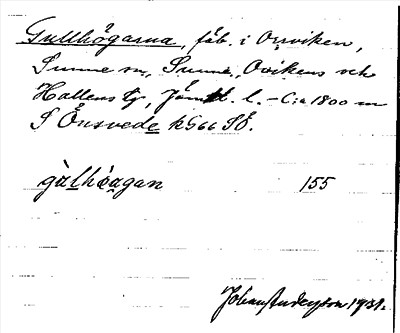 Gullhögarna, fäb. i Orrviken,
Sunne sn, Sunne, Ovikens och
Hallens tg, Jämtl. l. – C:a 1800 m
S Önsvede k566 SÖ.
gùlhö̀agan 155
Johan Anderson 1931.